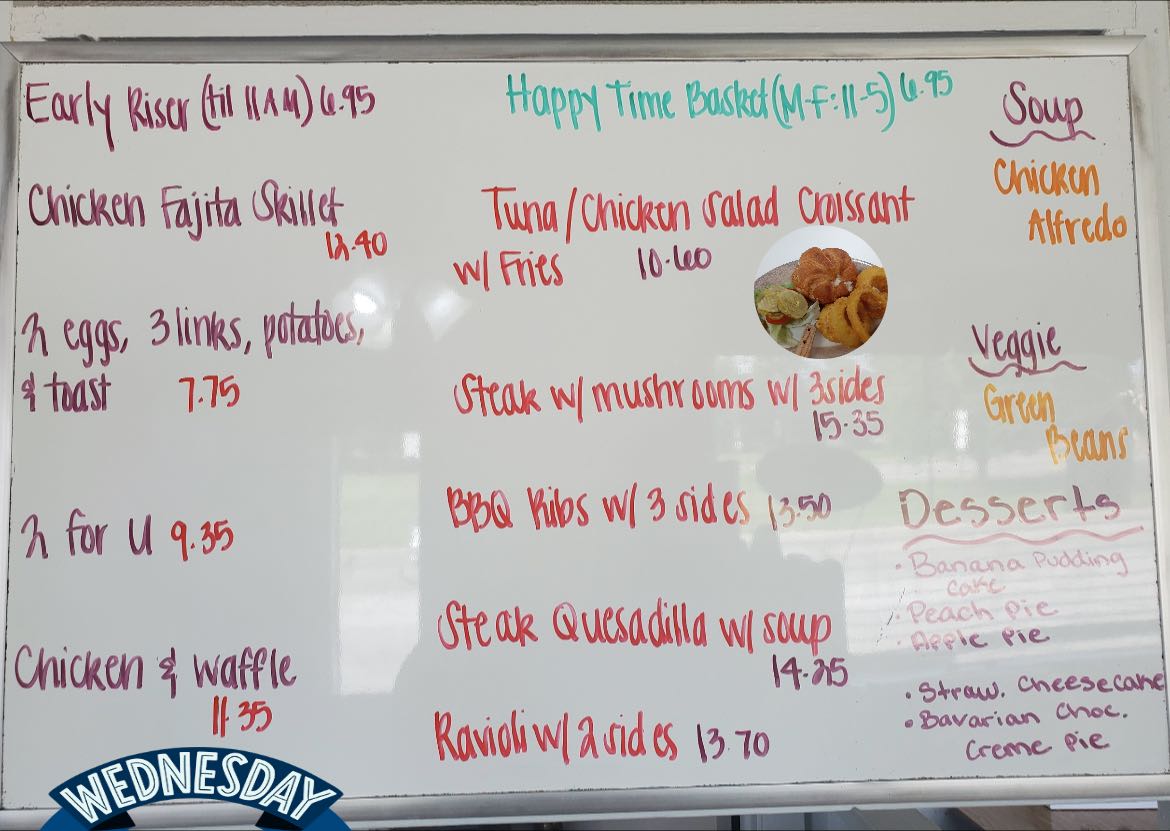 Early Riser (til 11AM) 6.95
Chicken Fajita Skillet
12.40
2 eggs, 3 links, potatoes,
& toast 7.75
2 for U 9.35
Chicken & Waffle
11.35
WEDNESDAY
Happy Time Basket (M-F: 11-5) 6.95
Tuna/Chicken Salad Croissant
w/ Fries 10.60
Steak w/ mushrooms w/ 3 sides
15.35
BBQ Ribs w/ 3 sides 13.50
Steak Quesadilla w/ soup
14.25
Ravioli w/ 2 sides 13.70
Soup
Chicken
Alfredo
Veggie
Green
Beans
Desserts
• Banana Pudding
cake
• Peach Pie
• Apple Pie
• Straw. Cheesecake
• Bavarian Choc.
Creme Pie